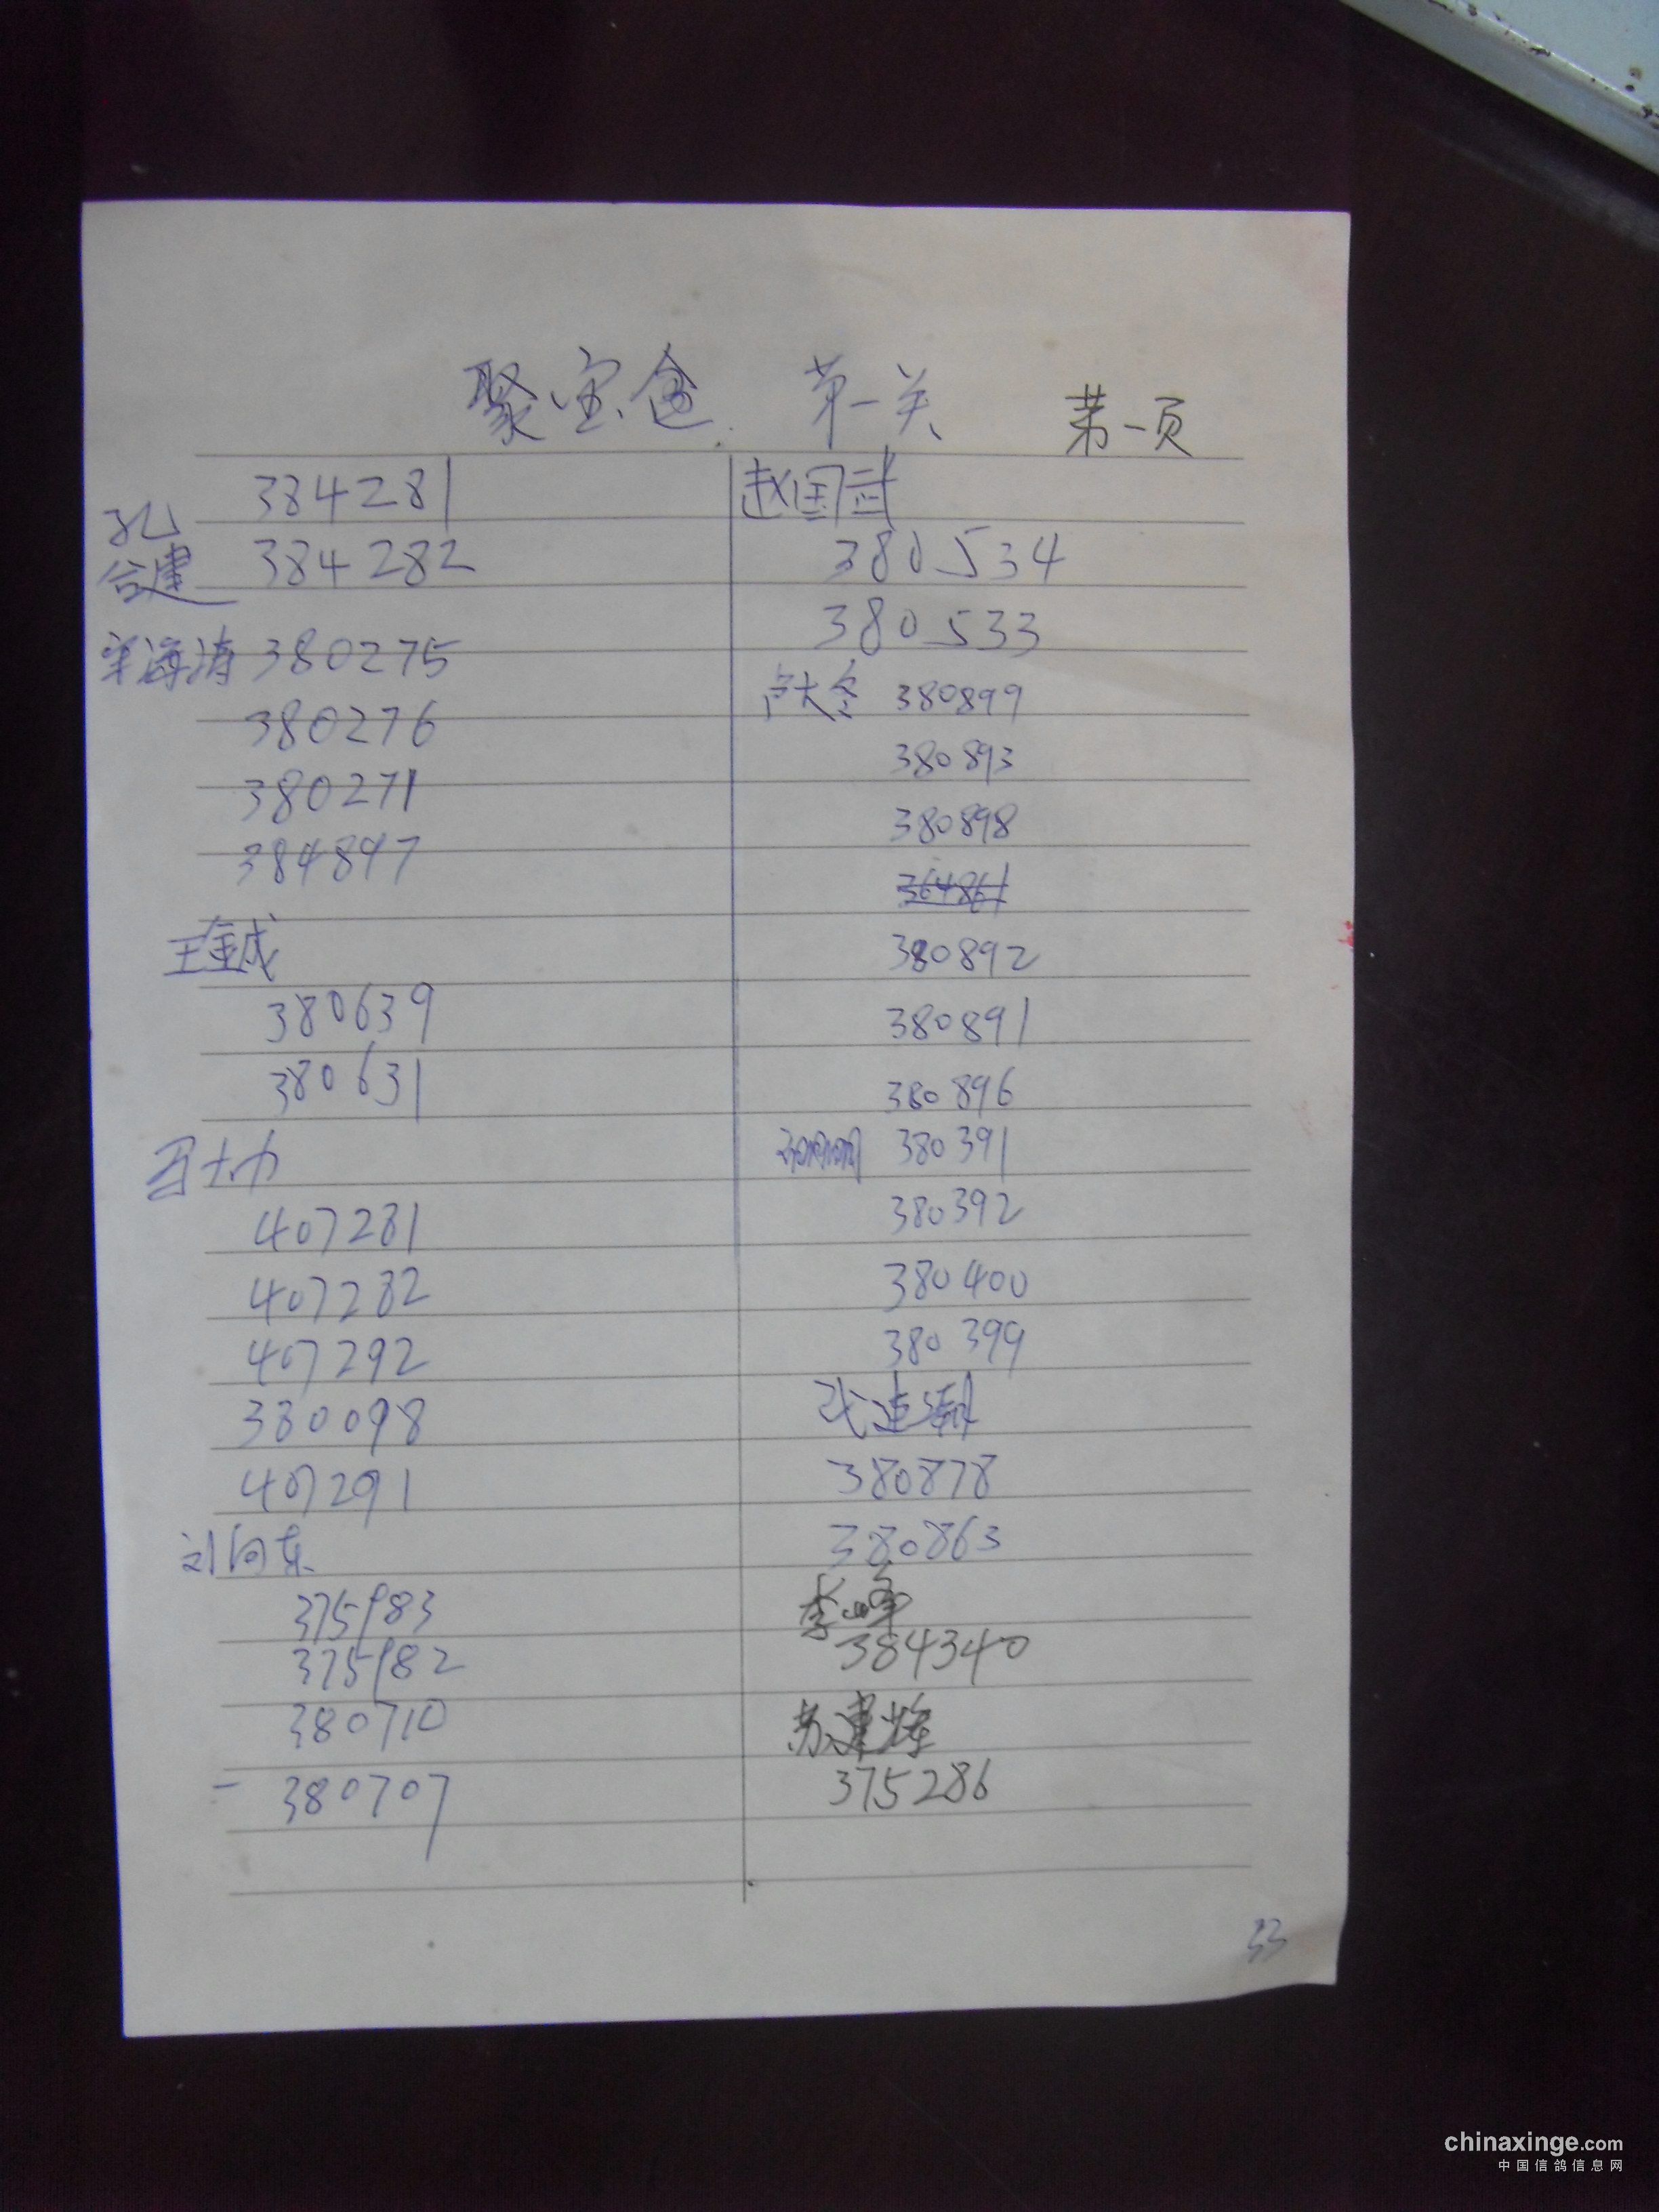 聚宝盆 第一关 第一页
384281
孔
384282
台建
海涛 380275
380276
380271
384897
王金成
380639
380631
407281
407282
407292
380098
407291
刘向东
375983
375982
380710
380707
赵国武
380534
380533
卢大冬 380899
380893
380898
364861
380892
380891
380896
380391
380392
380400
380399
380878
380863
李峰
384340
苏建辉
375286
33
chinaxinge.com
中国信鸽信息网